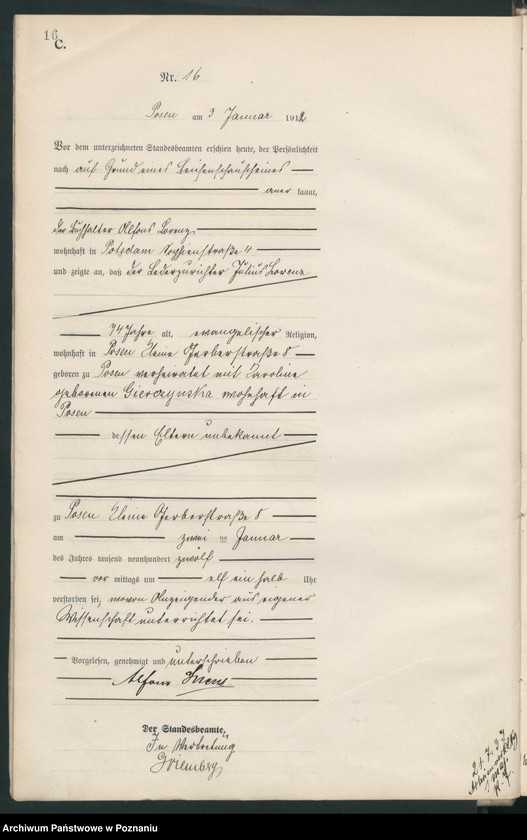 16
C.
Nr. 16
Posen am 3 Januar 1912
Vor dem unterzeichneten Standesbeamten erschien heute, der Persönlichkeit
nach auf Grund eines Leichenschauscheines
aner kannt,
der Buchhalter Alfons Lorenz,
wohnhaft in Potsdam Sophienstraße 4
und zeigte an, daß der Lederzurichter Julius Lorenz
74 Jahre alt, evangelischer Religion,
wohnhaft in Posen Kleine Gerberstraße 8
geboren zu Posen verheiratet mit Karoline
geborenen Gierczynska wohnhaft in
Posen
dessen Eltern unbekannt
zu Posen Kleine Gerberstraße 8
am zwei ten Januar
des Jahres tausend neunhundert zwölf
vor mittags um elf ein halb Uhr
verstorben sei, wovon Anzeigender aus eigener
Wissenschaft unterrichtet sei.
Vorgelesen, genehmigt und unterschrieben
Alfons Lorenz
Der Standesbeamte,
In Vertretung
21.7.37
Archiwum Państwowe w Poznaniu